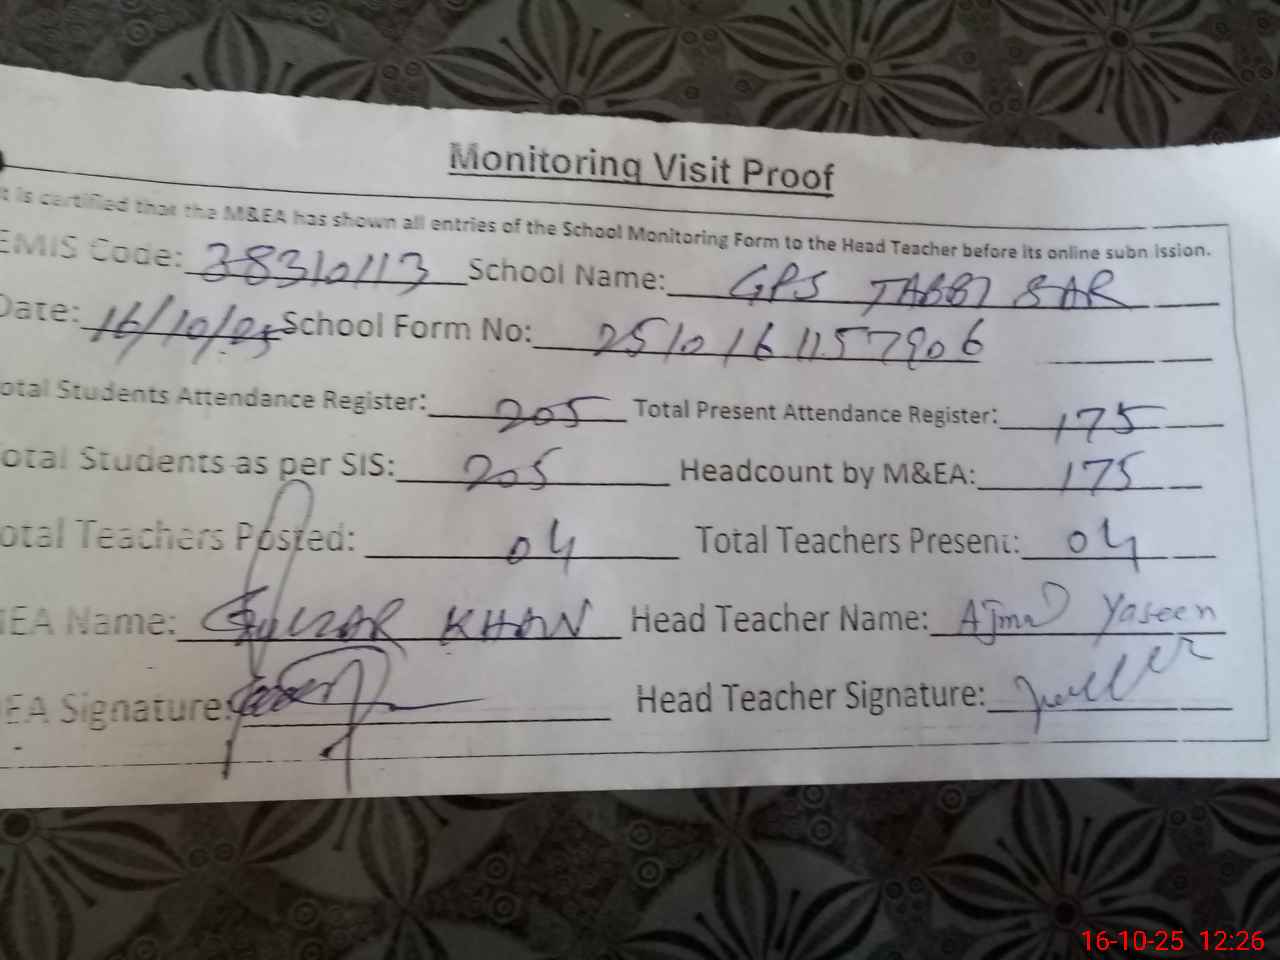 Monitoring Visit Proof
t is certified that the M&EA has shown all entries of the School Monitoring Form to the Head Teacher before its online subn ission.
EMIS Code: 38310113 School Name: GPS TABBI SAR
Date: 16/10/25 School Form No: 2510161157906
otal Students Attendance Register: 205 Total Present Attendance Register: 175
otal Students as per SIS: 205 Headcount by M&EA: 175
otal Teachers Posted: 04 Total Teachers Present: 04
EA Name: GULZAR KHAN Head Teacher Name: Ajmal Yaseen
EA Signature: Head Teacher Signature:
16-10-25 12:26